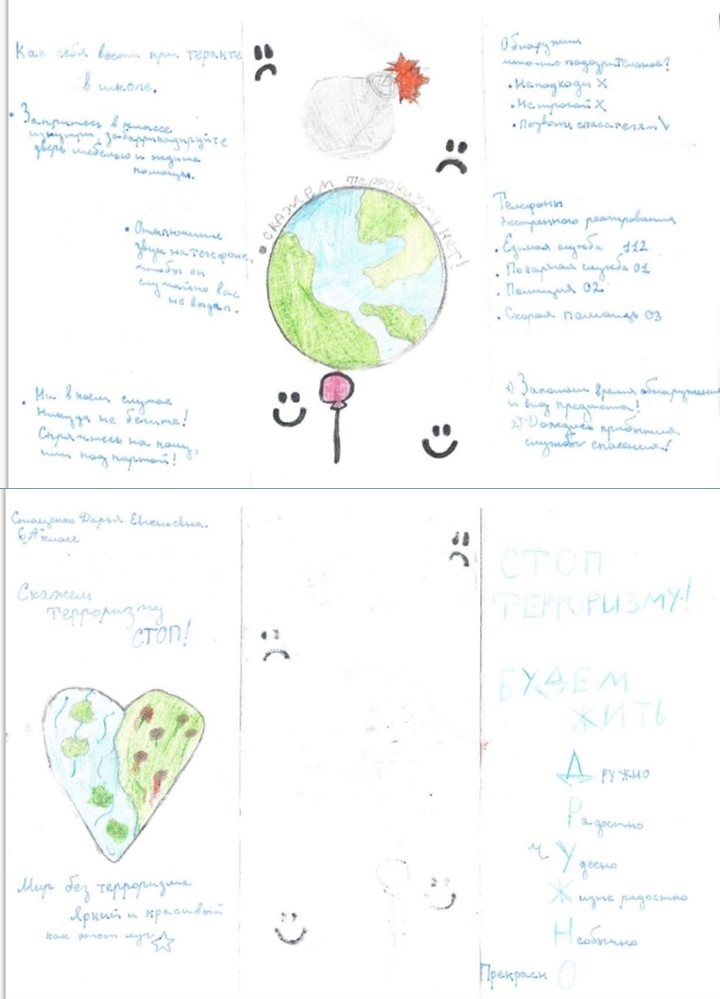 Как себя вести при теракте
в школе.
• Запритесь в классе
изнутри, забаррикадируйте
дверь мебелью и ждите
помощи.
• Отключите
звук на телефоне,
чтобы он
случайно вас
не выдал.
• Ни в коем случае
никуда не бегите!
Спрячьтесь на полу,
или под партой!
СКАЖЕМ ТЕРРОРИЗМУ НЕТ!
Обнаружил
что-то подозрительное?
• Не подходи X
• Не трогай X
• Позвони спасателям V
Телефоны
экстренного реагирования
• Единая служба 112
• Пожарная служба 01
• Полиция 02
• Скорая помощь 03
1) Запомни время обнаружения
и вид предмета!
2) Дождись прибытия
службы спасения!
Дарья Евгеньевна.
6 "А" класс
Скажем
терроризму
СТОП!
Мир без терроризма
яркий и красивый
как этот луч
СТОП
ТЕРРОРИЗМУ!
БУДЕМ
ЖИТЬ
Дружно
Радостно
чУдесно
Жизнерадостно
Необычно
ПрекраснО